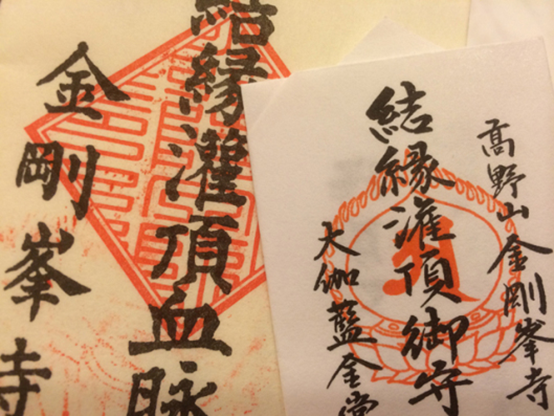 結縁灌頂血脉
金剛峯寺
高野山金剛峯寺
結縁灌頂御守
大伽藍金堂